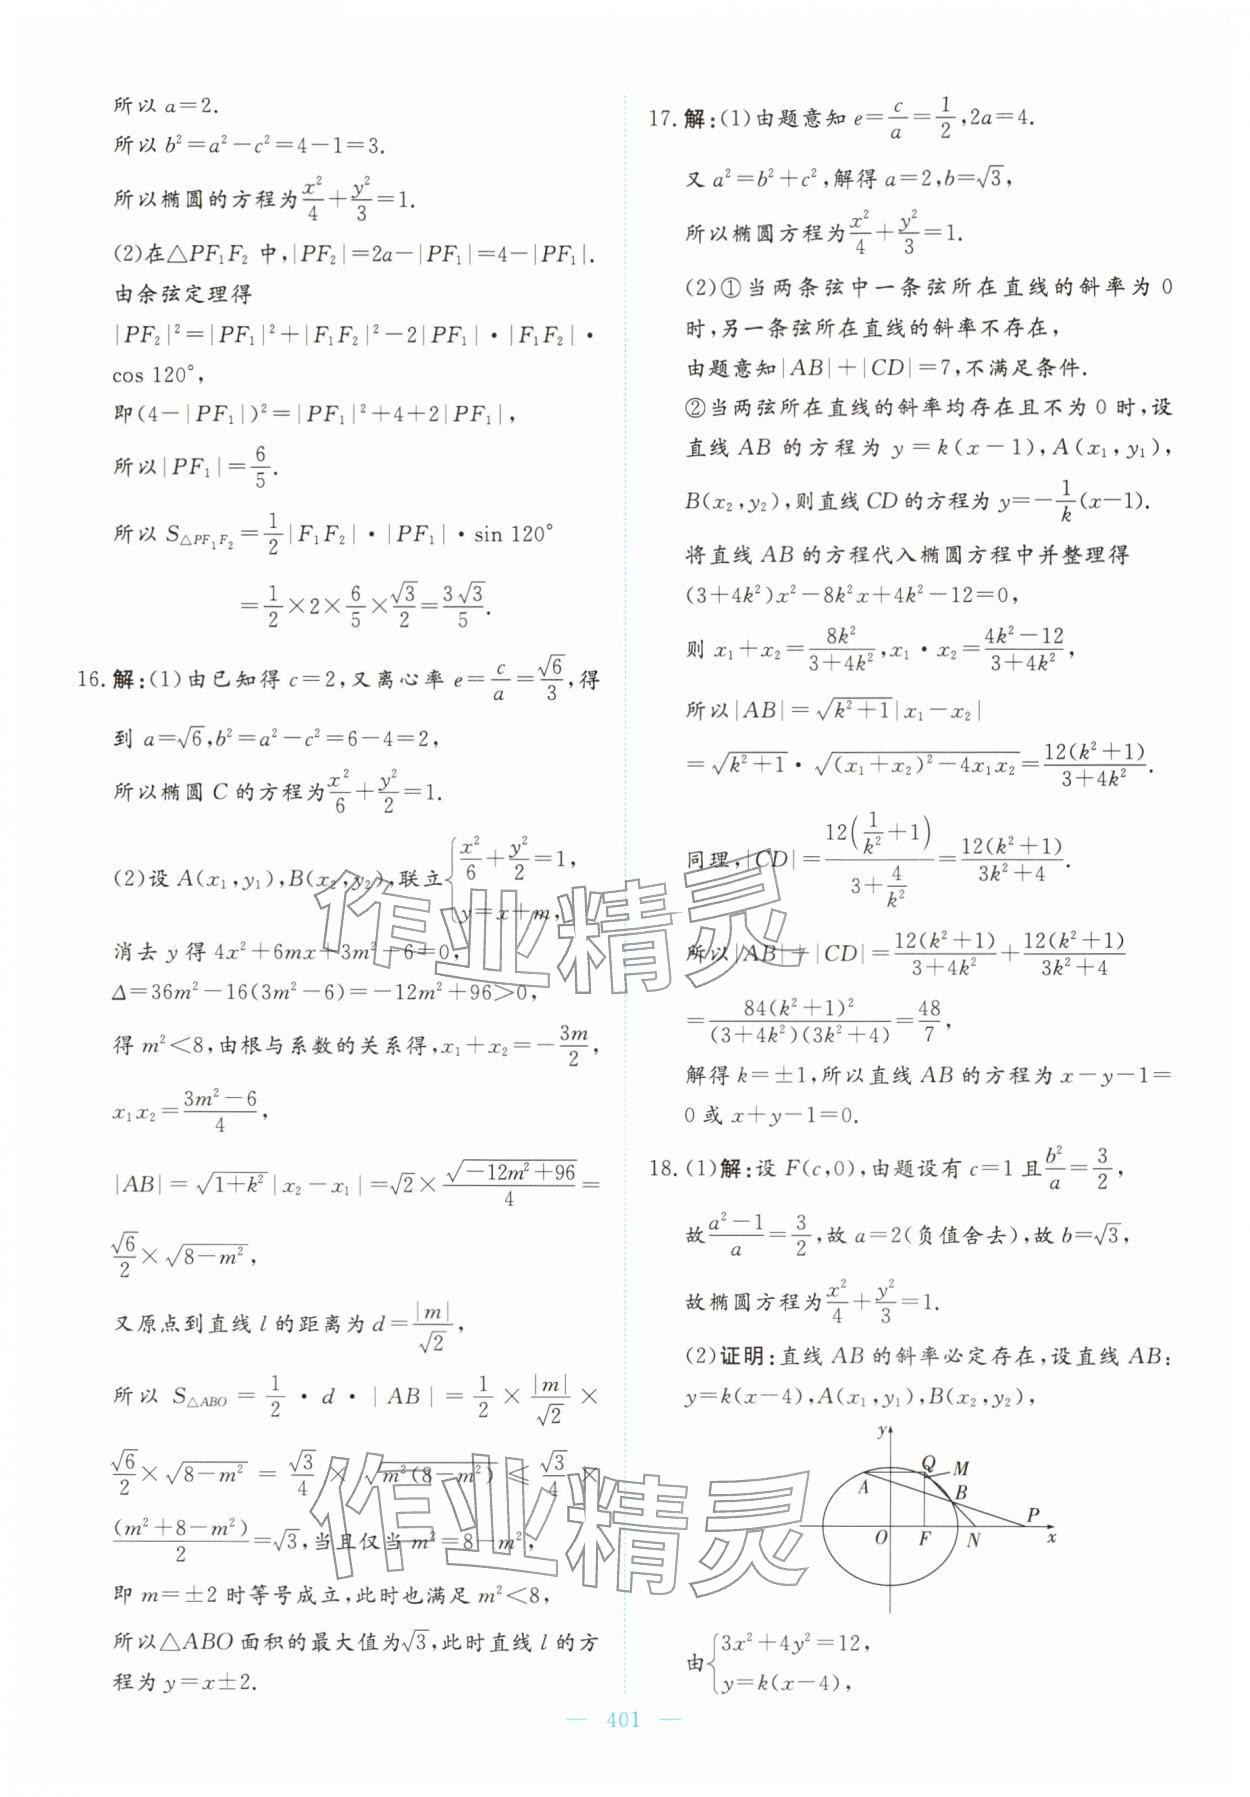 所以 a=2.
所以 b²=a²-c²=4-1=3.
所以椭圆的方程为x²/4+y²/3=1.
(2)在△PF₁F₂ 中,|PF₂|=2a-|PF₁|=4-|PF₁|.
由余弦定理得
|PF₂|²=|PF₁|²+|F₁F₂|²-2|PF₁|·|F₁F₂|·
cos 120°,
即(4-|PF₁|)²=|PF₁|²+4+2|PF₁|,
所以|PF₁|=6/5.
所以 S△PF₁F₂=1/2|F₁F₂|·|PF₁|·sin 120°
=1/2×2×6/5×√3/2=3√3/5.
16. 解:(1)由已知得 c=2,又离心率 e=c/a=√6/3,得
到 a=√6,b²=a²-c²=6-4=2,
所以椭圆 C 的方程为x²/6+y²/2=1.
(2)设 A(x₁,y₁),B(x₂,y₂),联立{x²/6+y²/2=1,
y=x+m,
消去 y 得 4x²+6mx+3m²-6=0,
Δ=36m²-16(3m²-6)=-12m²+96>0,
得 m²<8,由根与系数的关系得,x₁+x₂=-3m/2,
x₁x₂=(3m²-6)/4,
|AB|=√(1+k²)|x₂-x₁|=√2×√(-12m²+96)/4=
√6/2×√(8-m²),
又原点到直线 l 的距离为 d=|m|/√2,
所以 S△ABO=1/2·d·|AB|=1/2×|m|/√2×
√6/2×√(8-m²)=√3/4×√(m²(8-m²))≤√3/4×
(m²+8-m²)/2=√3,当且仅当 m²=8-m²,
即 m=±2 时等号成立,此时也满足 m²<8,
所以△ABO 面积的最大值为√3,此时直线 l 的方
程为 y=x±2.
17. 解:(1)由题意知 e=c/a=1/2,2a=4.
又 a²=b²+c²,解得 a=2,b=√3,
所以椭圆方程为x²/4+y²/3=1.
(2)①当两条弦中一条弦所在直线的斜率为 0
时,另一条弦所在直线的斜率不存在,
由题意知|AB|+|CD|=7,不满足条件.
②当两弦所在直线的斜率均存在且不为 0 时,设
直线 AB 的方程为 y=k(x-1),A(x₁,y₁),
B(x₂,y₂),则直线 CD 的方程为 y=-1/k(x-1).
将直线 AB 的方程代入椭圆方程中并整理得
(3+4k²)x²-8k²x+4k²-12=0,
则 x₁+x₂=8k²/(3+4k²),x₁·x₂=(4k²-12)/(3+4k²),
所以|AB|=√(k²+1)|x₁-x₂|
=√(k²+1)·√((x₁+x₂)²-4x₁x₂)=12(k²+1)/(3+4k²).
同理,|CD|=12(1/k²+1)/(3+4/k²)=12(k²+1)/(3k²+4).
所以|AB|+|CD|=12(k²+1)/(3+4k²)+12(k²+1)/(3k²+4)
=84(k²+1)²/((3+4k²)(3k²+4))=48/7,
解得 k=±1,所以直线 AB 的方程为 x-y-1=
0 或 x+y-1=0.
18. (1)解:设 F(c,0),由题设有 c=1 且b²/a=3/2,
故(a²-1)/a=3/2,故 a=2(负值舍去),故 b=√3,
故椭圆方程为x²/4+y²/3=1.
(2)证明:直线 AB 的斜率必定存在,设直线 AB:
y=k(x-4),A(x₁,y₁),B(x₂,y₂),
y
Q M
A B
P
O F N x
由{3x²+4y²=12,
y=k(x-4),
— 401 —
作业精灵
作业精灵